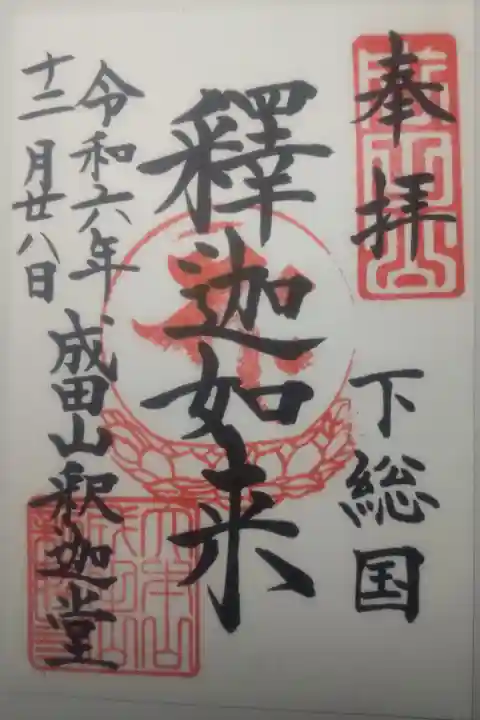 奉拝
下総国
釋迦如来
成田山釈迦堂
令和六年
十二月廿八日
成田山